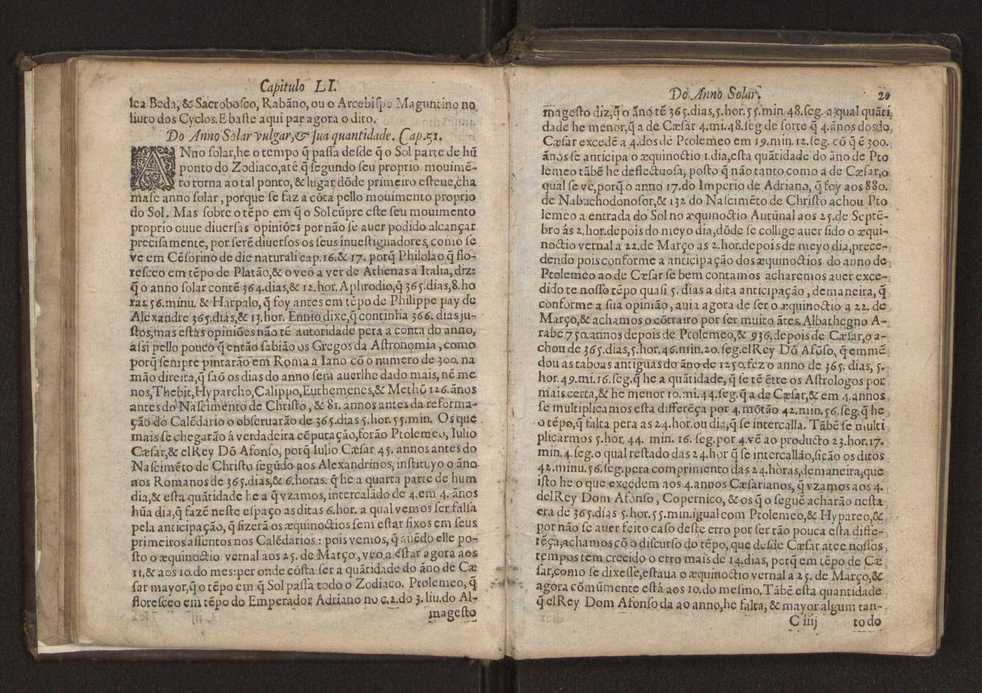 Capitulo LI.
lea Beda, & Sacrobosco, Rabãno, ou o Arcebispo Maguntino no
liuro dos Cyclos. E baste aqui par agora o dito.
Do Anno Solar vulgar, & sua quantidade. Cap. 51.
ANno solar, he o tempo q̃ passa desde q̃ o Sol parte de hũ
ponto do Zodiaco, atè q̃ segundo seu proprio mouimē-
to torna ao tal ponto, & lugar dõde primeiro esteue, cha
mase anno solar, porque se faz a cõta pello mouimento proprio
do Sol. Mas sobre o tẽpo em q̃ o Sol cũpre este seu mouimento
proprio ouue diuersas opiniões por não se auer podido alcançar
precisamente, por serẽ diuersos os seus inuestigadores, como se
ve em Cẽsorino de die naturali cap. 16. & 17. porq̃ Philolao q̃ flo-
resceo em tẽpo de Platão, & o veo a ver de Athenas a Italia, diz:
q̃ o anno solar contẽ 364. dias, & 12. hor. Aphrodio, q̃ 365. dias, 8. ho
ras: 56. minu. & Harpalo, q̃ foy antes em tẽpo de Philippe pay de
Alexandre 365. dias, & 13. hor. Ennio dixe, q̃ continha 366. dias ju-
stos, mas estas opiniões não tẽ autoridade pera a conta do anno,
assi pello pouco q̃ então sabião os Gregos da Astronomia, como
porq̃ sempre pintarão em Roma a Iano cõ o numero de 300. na
mão direita, q̃ saõ os dias do anno sem auerlhe dado mais, nẽ me
nos, Thebit, Hyparcho, Calippo, Euthemenes, & Methũ 126. ãnos
antes do Nascimento de Christo, & 81. annos antes da reforma-
ção do Calẽdario o obseruarão de 365. dias 5. hor. 55. min. Os que
mais se chegarão á verdadeira cõputação, forão Ptolemeo, Iulio
Cæsar, & el Rey Dõ Afonso, porq̃ Iulio Cæsar 45. annos antes do
Nascimẽto de Christo segũdo aos Alexandrinos, instituyo o ãno
aos Romanos de 365. dias, & 6. horas: q̃ he a quarta parte de hum
dia, & esta quãtidade he a q̃ vzamos, intercalãdo de 4. em 4. ãnos
hũa dia, q̃ fazẽ neste espaço as ditas 6. hor. a qual vemos ser falsa
pela anticipação, q̃ fizerã os æquinoctios sem estar fixos em seus
primeiros assentos nos Calẽdarios: pois vemos, q̃ auẽdo elle po-
sto o æquinoctio vernal aos 25. de Março, veo a estar agora aos
11. & aos 10. do mes: per onde cõsta ser a quãtidade do ãno de Cæ
sar mayor, q̃ o tẽpo em q̃ Sol passa todo o Zodiaco. Ptolemeo, q̃
floresceo em tẽpo do Emperador Adriano no c. 2. do 3. liu. do Al-
magesto
Do Anno Solar. 20
magesto diz, q̃ o ãno tẽ 365. dias, 5. hor. 55. min 48. seg. a qual quãti
dade he menor, q̃ a de Cæsar 4. mi. 48. seg de sorte q̃ 4. ãnos do do
Cæsar excedẽ a 4. dos de Ptolemeo em 19. min. 12. seg. cõ q̃ ẽ 300.
ãnos se anticipa o æquinoctio 1. dia, esta quãtidade do ãno de Pto
lemeo tãbẽ he deflectuosa, posto q̃ não tanto como a de Cæsar, o
qual se ve, porq̃ o anno 17. do Imperio de Adriano, q̃ foy aos 880.
de Nabuchodonosor, & 132 do Nascimẽto de Christo achou Pto
lemeo a entrada do Sol no æquinoctio Autũnal aos 25. de Septẽ-
bro ás 2. hor. depois do meyo dia, dõde se collige auer sido o æqui-
noctio vernal a 22. de Março as 2. hor. depois de meyo dia, prece-
dendo pois conforme a anticipação dos æquinoctios do anno de
Ptolemeo ao de Cæsar se bem contamos acharemos auer exce-
dido te nosso tẽpo quasi 5. dias a dita anticipação, demaneira, q̃
conforme a sua opinião, auia agora de ser o æquinoctio a 22. de
Março, & achamos o cõtrairo por ser muito ãtes. Albathegno A-
rabe 750. annos depois de Ptolemeo, & 936. depois de Cæsar, o a-
chou de 365. dias, 5. hor. 46. min. 20. seg. el Rey Dõ Afõso, q̃ emmẽ
dou as taboas antiguas do ãno de 1250. fez o anno de 365. dias, 5.
hor. 49. mi. 16. seg. q̃ he a quãtidade, q̃ se tẽ ẽtre os Astrologos por
mais certa, & he menor 10. mi. 44. seg. q̃ a de Cæsar, & em 4. annos
se multiplicamos esta differẽça por 4. mõtão 42. min. 56. seg. q̃ he
o tẽpo, q̃ falta pera as 24. hor. ou dia, q̃ se intercalla. Tãbẽ se multi
plicarmos 5. hor. 44. min. 16. seg. por 4. vẽ ao producto 23. hor. 17.
min. 4. seg. o qual restado das 24. hor q̃ se intercallão, ficão os ditos
42. minu. 56. seg. pera comprimento das 24. hòras, demaneira, que
isto he o que excedem aos 4. annos Cæsarianos, q̃ vzamos aos 4.
del Rey Dom Afonso, Copernico, & os q̃ o seguẽ acharão nesta
era de 365 dias 5. hor. 55. min. igual com Ptolemeo, & Hyparco, &
por não se auer feito caso deste erro por ser tão pouca esta diffe-
rẽça, achamos cõ o discurso do tẽpo, que desde Cæsar atee nossos
tempos tem crecido o erro mais de 14. dias, perq̃ em tẽpo de Cæ
sar, como se dixesse, estaua o æquinoctio vernal a 25. de Março, &
agora cõmũmente está aos 10. do mesmo. Tãbẽ esta quantidade
q̃ el Rey Dom Afonso da ao anno, he falta, & mayor algum tan-
C iiij todo